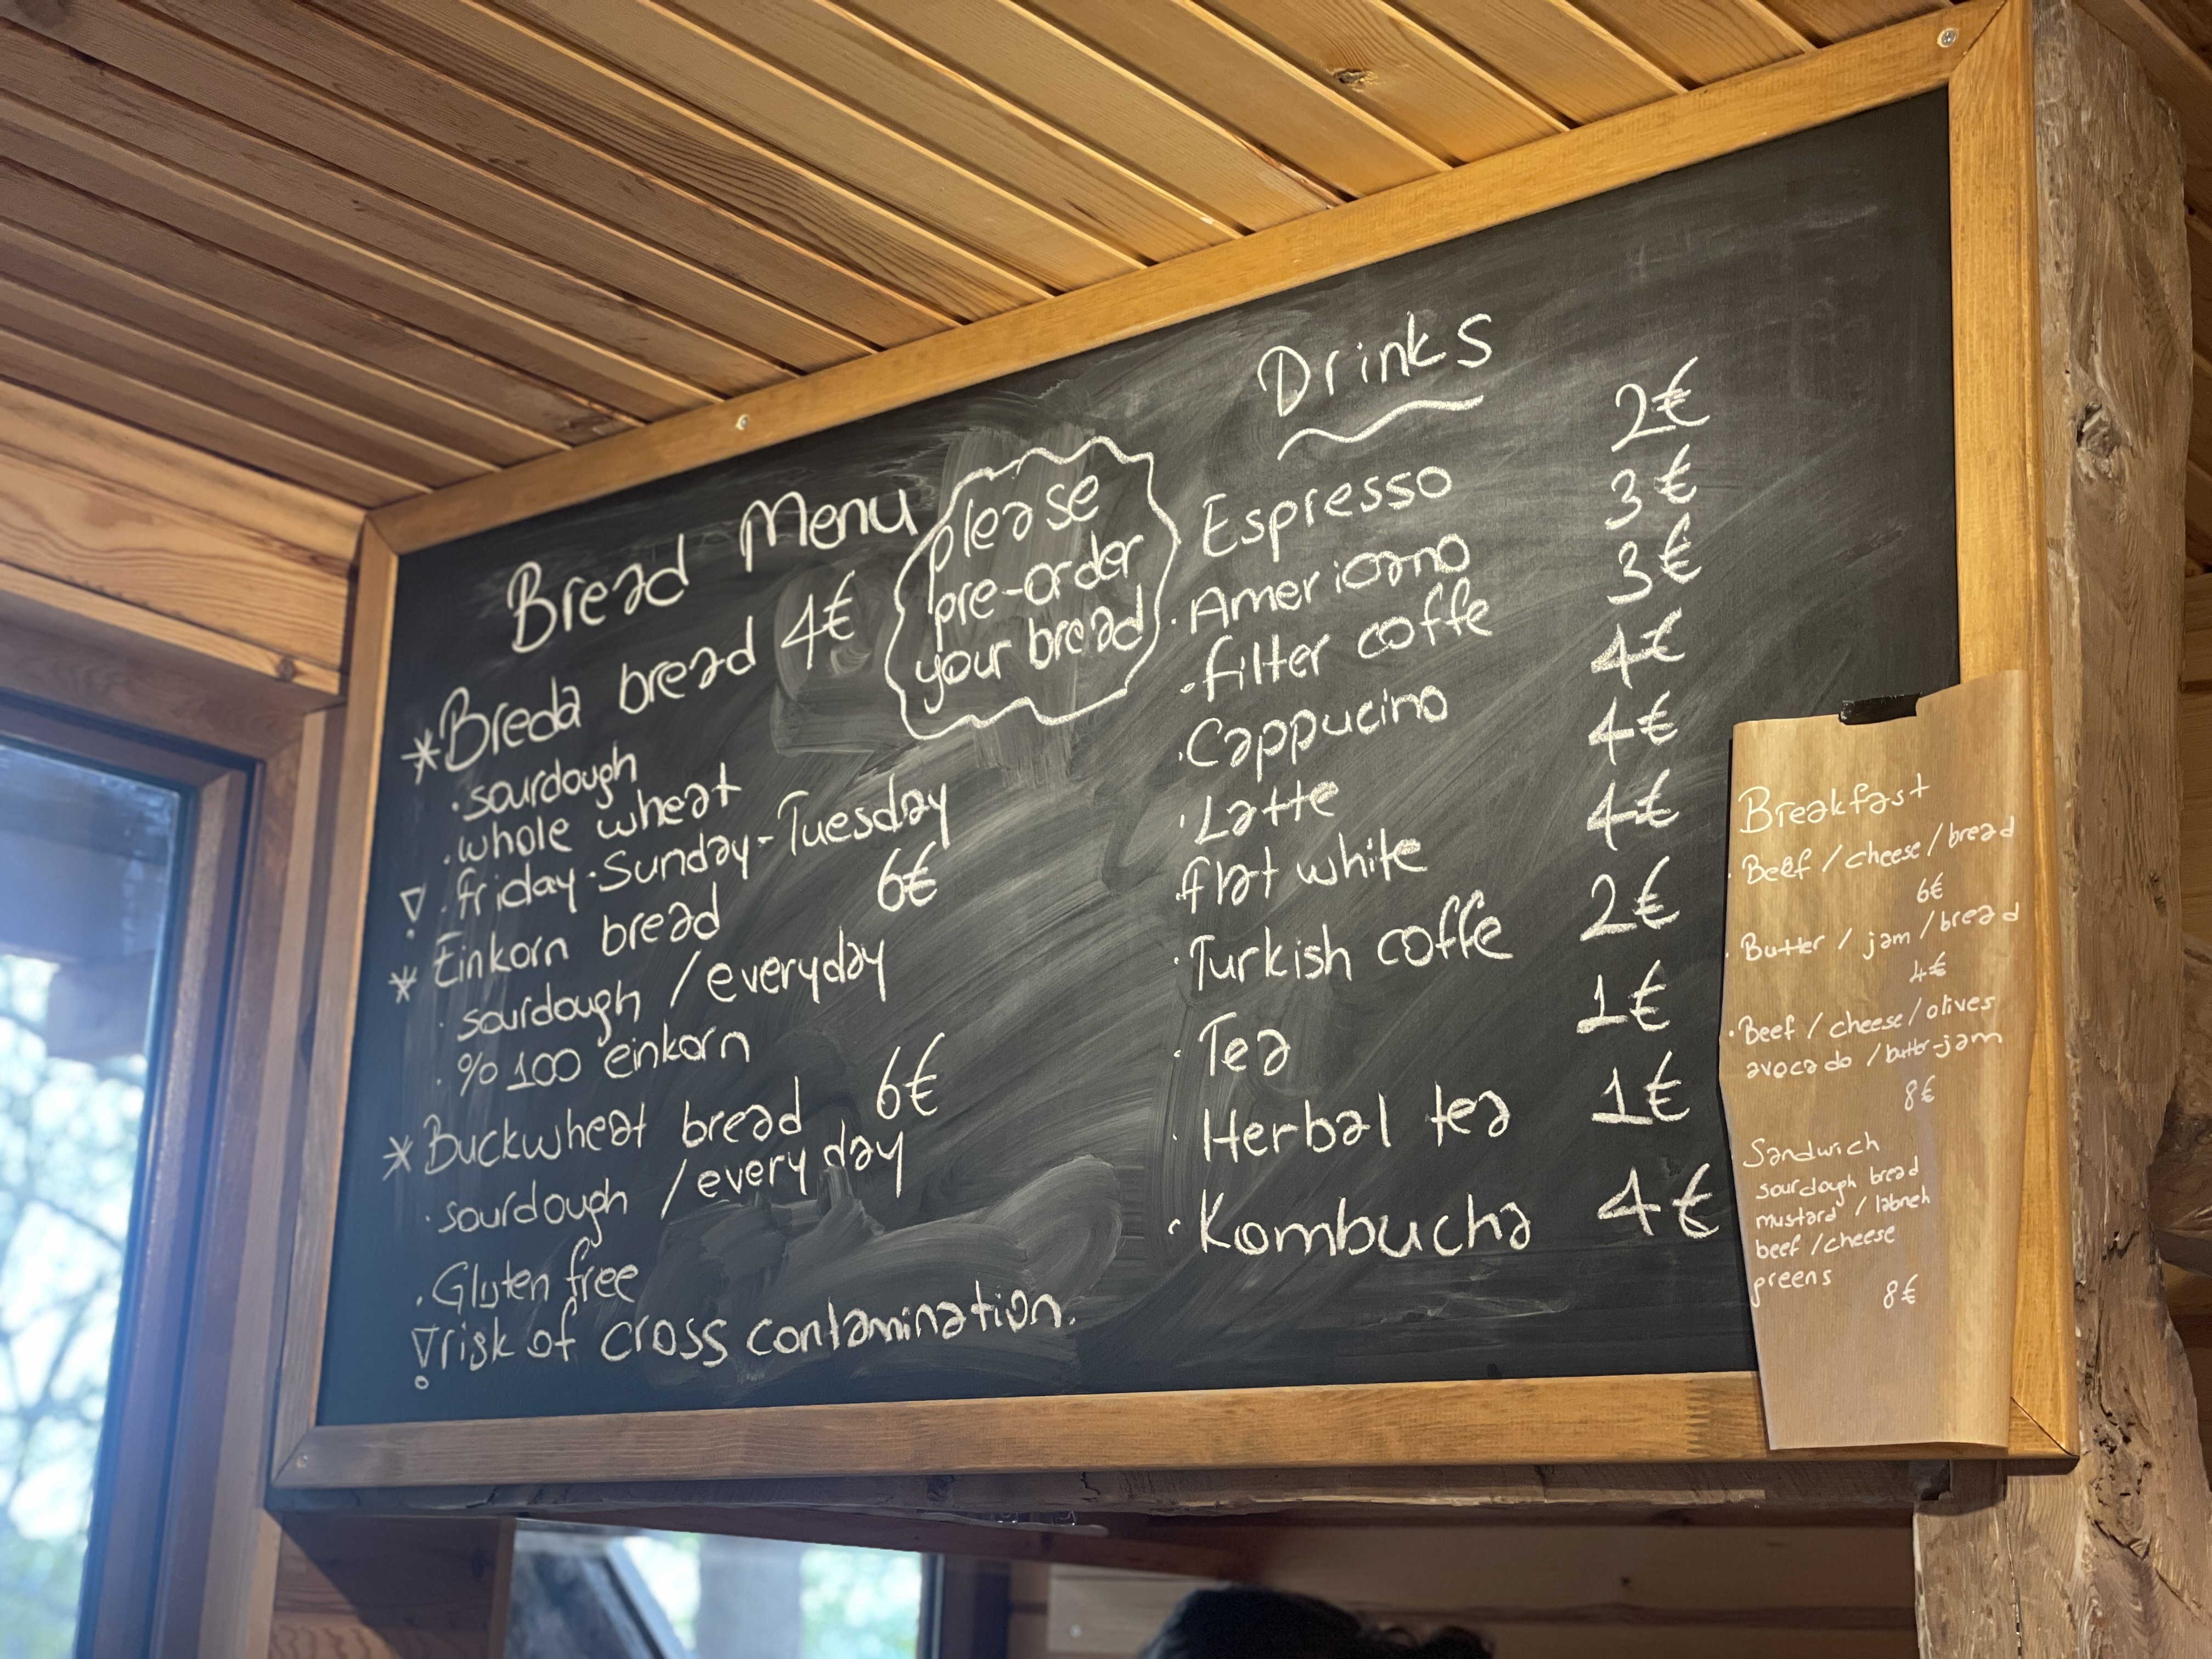 Bread Menu
please
pre-order
your bread
*Breda bread 4€
· sourdough
· whole wheat
! · friday · Sunday - Tuesday
* Einkorn bread 6€
· sourdough / everyday
· %100 einkorn
* Buckwheat bread 6€
· sourdough / every day
· Gluten free
! risk of cross contamination.
Drinks
Espresso 2€
· Americano 3€
· filter coffe 3€
· Cappucino 4€
· Latte 4€
· flat white 4€
· Turkish coffe 2€
· Tea 1€
· Herbal tea 1€
· Kombucha 4€
Breakfast
· Beef / cheese / bread
6€
· Butter / jam / bread
4€
· Beef / cheese / olives
avocado / butter-jam
8€
Sandwich
sourdough bread
mustard / labneh
beef / cheese
greens
8€